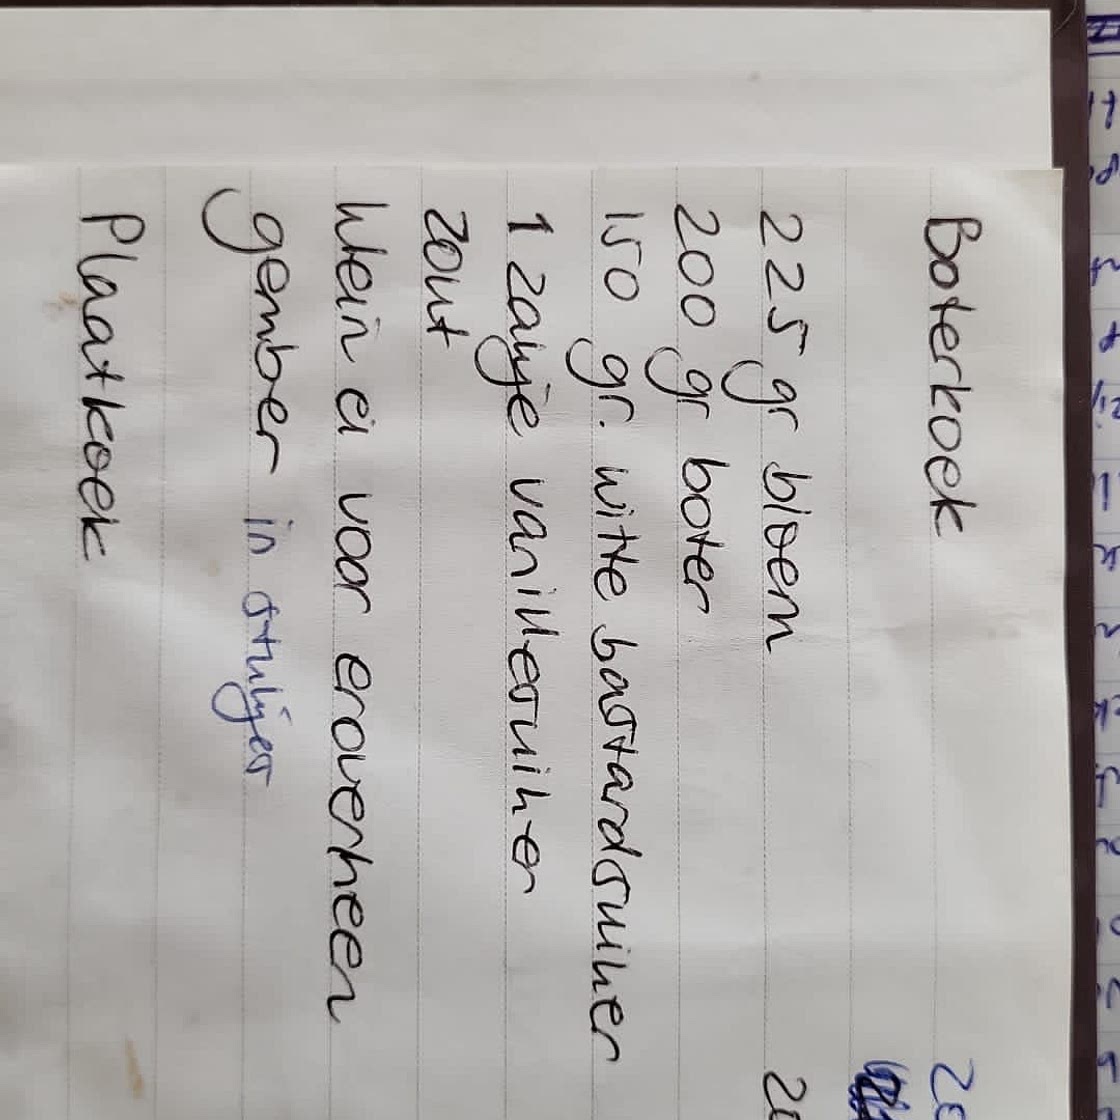 Boterkoek
225 gr bloem
200 gr boter
150 gr. witte bastardsuiker
1 zakje vanillesuiker
zout
klein ei voor eroverheen
gember in stukjes
Plaatkoek